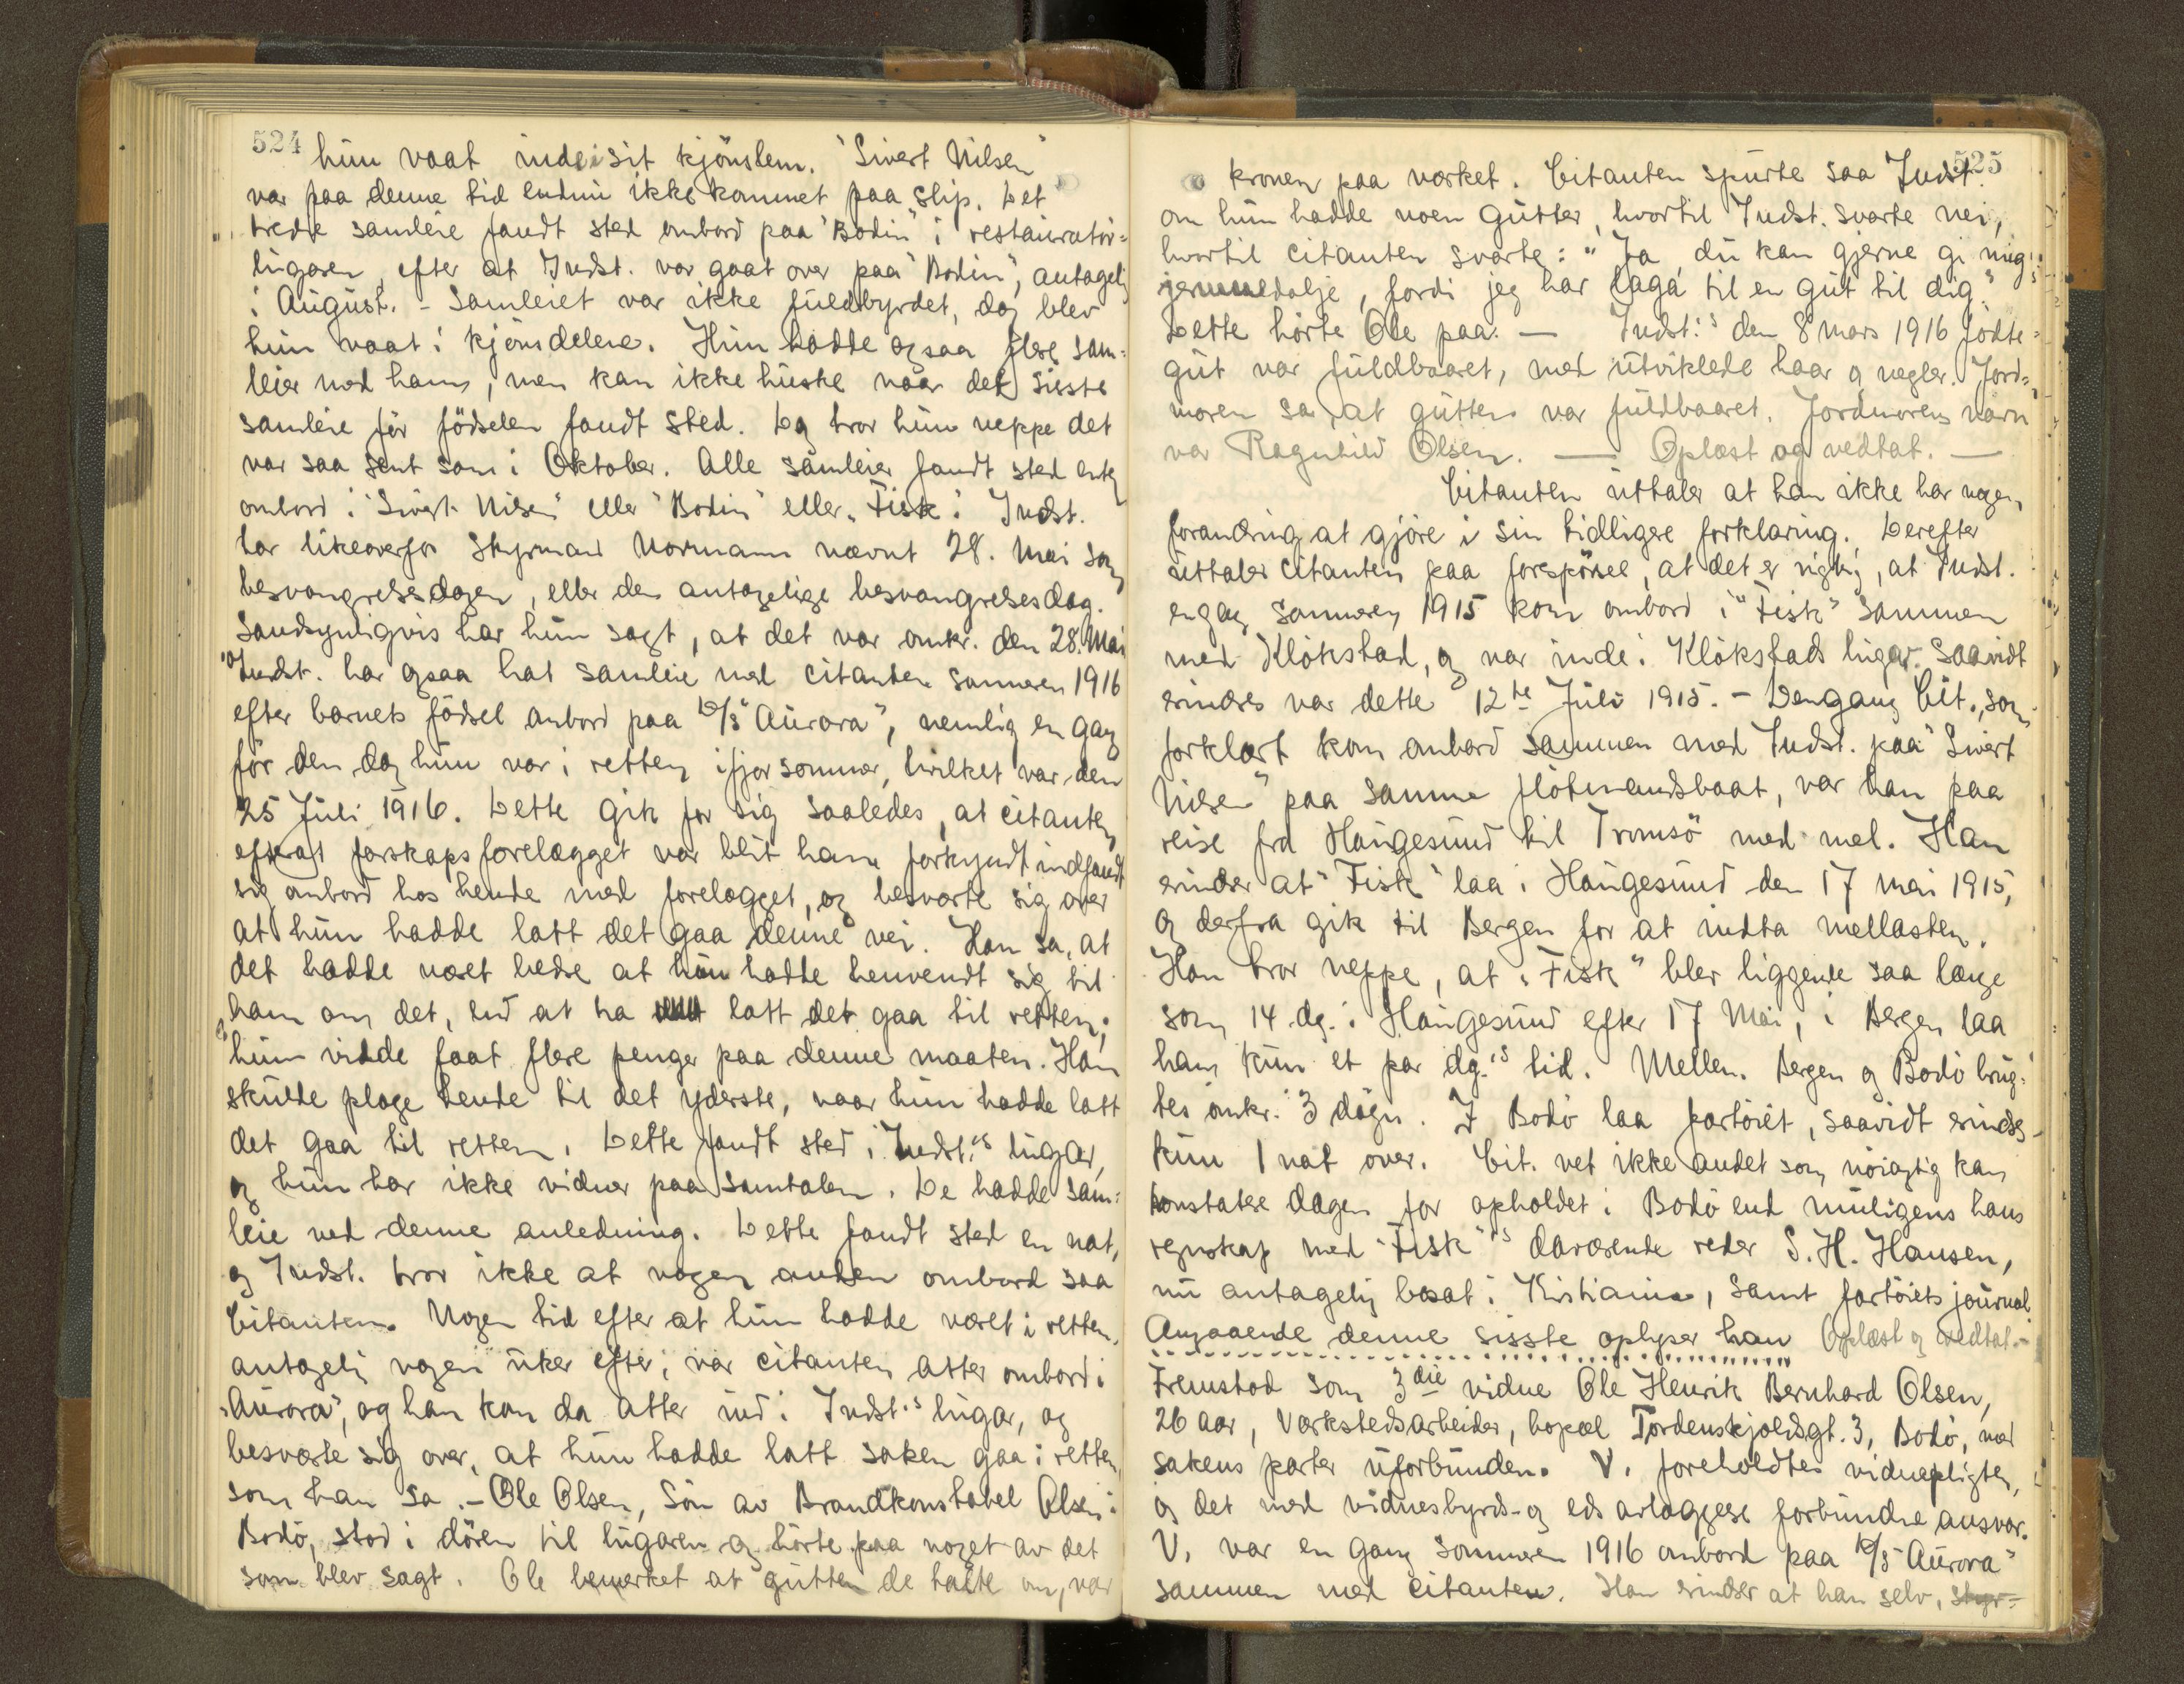 524
hun vaat inde i sit kjønslem. "Sivert Nilsen"
var paa denne tid endnu ikke kommet paa slip. Det
tredje samleie fandt sted ombord paa "Bodin" i restauratør=
lugaren, efter at Indst. var gaat over paa "Bodin", antagelig
i August. - Samleiet var ikke fuldbyrdet, dog blev
hun vaat i kjønsdelene. Hun hadde ogsaa flere sam=
leier med ham, men kan ikke huske naar det sisste
samleie før fødselen fandt sted. Dog tror hun neppe det
var saa sent som i Oktober. Alle samleier fandt sted enten
ombord i "Sivert Nilsen" eller "Bodin" eller "Fisk". Indst.
har likeoverfor Styrmand Normann nævnt 28. Mai som
besvangrelsesdagen, eller den antagelige besvangrelsesdag.
Sandsynligvis har hun sagt, at det var omkr. den 28. Mai
Indst. har ogsaa hat samleie med citanten sommeren 1916
efter barnets fødsel ombord paa D/S "Aurora", nemlig en gang
før den dag hun var i retten ifjor sommer, hvilket var den
25 Juli 1916. Dette gik for sig saaledes, at citanten
efterat farskapsforelægget var blit ham forkyndt indfandt
sig ombord hos hende med forelægget, og besværte sig over
at hun hadde latt det gaa denne vei. Han sa, at
det hadde været bedre at hun hadde henvendt sig til
ham om det, end at ha latt det gaa til retten;
hun vilde faat flere penger paa denne maaten. Han
skulde plage hende til det yderste, naar hun hadde latt
det gaa til retten. Dette fandt sted i Indst.'s lugar,
og hun har ikke vidner paa samtalen. De hadde sam=
leie ved denne anledning. Dette fandt sted en nat,
og Indst. tror ikke at nogen anden ombord saa
Citanten. Nogen tid efter at hun hadde været i retten,
antagelig nogen uker efter, var citanten atter ombord i
"Aurora", og han kom da atter ind i Indst.'s lugar, og
besværte sig over, at hun hadde latt saken gaa i retten,
som han sa. - Ole Olsen, Søn av Brandkonstabel Olsen i
Bodø, stod i døren til lugaren og hørte paa noget av det
som blev sagt. Ole bemerket at gutten de talte om, var
525
kronen paa værket. Citanten spurte saa Indst.
om hun hadde noen gutter, hvortil Indst. svarte nei,
hvortil citanten svarte: "Ja, du kan gjerne gi mig
jernmedalje, fordi jeg har laga til en gut til dig."
Dette hørte Ole paa. — Indst.'s den 8 mars 1916 fødte
gut var fuldbaaret, med utviklede haar og negler. Jord=
moren sa, at gutten var fuldbaaret. Jordmorens navn
var Ragnhild Olsen. — Oplæst og vedtat. —
Citanten uttaler at han ikke har nogen
forandring at gjøre i sin tidligere forklaring. Derefter
uttaler citanten paa forespørsel, at det er rigtig, at Indst.
engang sommeren 1915 kom ombord i "Fisk" sammen
med Kløkstad, og var inde i Kløkstads lugar. Saavidt
erindres var dette 12te Juli 1915. - Dengang Cit., som
forklart kom ombord sammen med Indst. paa "Sivert
Nilsen" paa samme fløtmandsbaat, var han paa
reise fra Haugesund til Tromsø med mel. Han
erindrer at "Fisk" laa i Haugesund den 17 mai 1915,
og derfra gik til Bergen for at indta mellasten.
Han tror neppe, at "Fisk" blev liggende saa længe
som 14 dg. i Haugesund efter 17 Mai, i Bergen laa
han kun et par dg.'s tid. Mellem Bergen og Bodø brug=
tes omkr. 3 døgn. I Bodø laa fartøiet, saavidt erindres
kun 1 nat over. Cit. vet ikke andet som nøiagtig kan
konstatere dagen for opholdet i Bodø end muligens hans
regnskap med "Fisk"'s daværende reder S. H. Hansen,
nu antagelig bosat i Kristiania, samt fartøiets journal
Angaaende denne sisste oplyser han Oplæst og vedtat. -
Fremstod som 3die vidne Ole Henrik Bernhard Olsen,
26 aar, Værkstedsarbeider, bopæl Tordenskjoldsgt. 3, Bodø, med
sakens parter uforbunden. V. foreholdtes vidnepligten,
og det med vidnesbyrd- og eds avlæggelse forbundne ansvar.
V. var en gang sommeren 1916 ombord paa D/S "Aurora"
sammen med citanten. Han erindrer at han selv, styr=